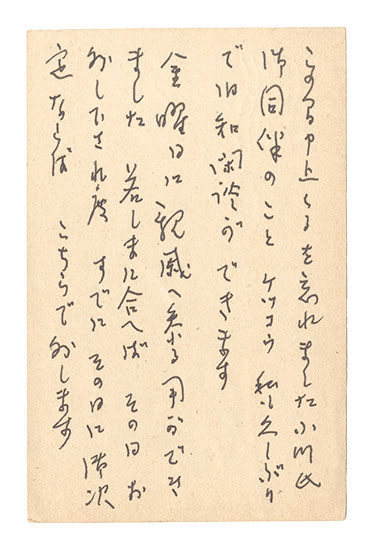 この間申上げるを忘れました小川氏
御同伴のこと ケツコウ 私も久しぶり
で旧知閑談ができます
金曜日に親戚へ参る用ができ
ました 若しまに合へば その日お
外し下され度 すでに その日に御決
定ならば こちらで外します